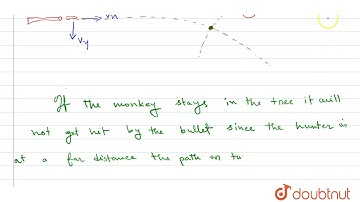 vx
vy
If the monkey stays in the tree it will
not get het by the bullet since the hunter is
at a far distance the path on ta
doubtnut